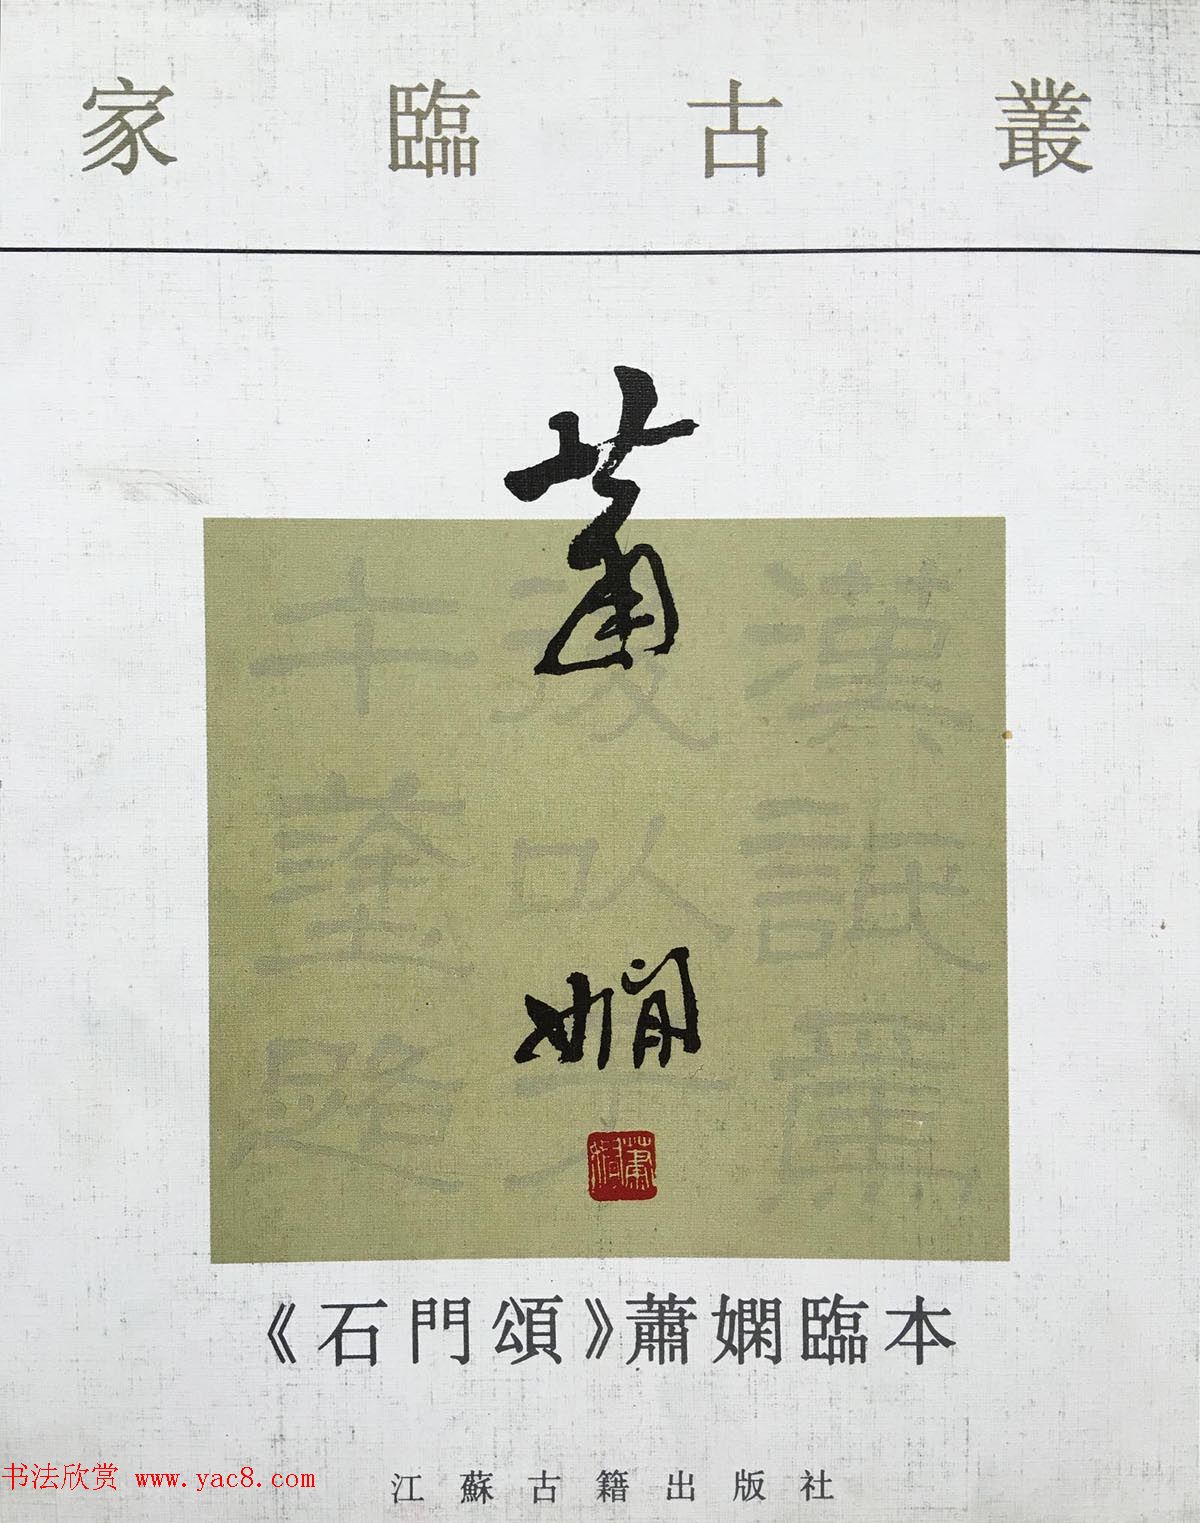 家臨古叢
蕭嫻
漢詆焉
後以子
十鑿路
蕭嫻
《石門頌》蕭嫻臨本
书法欣赏 www.yac8.com
江蘇古籍出版社